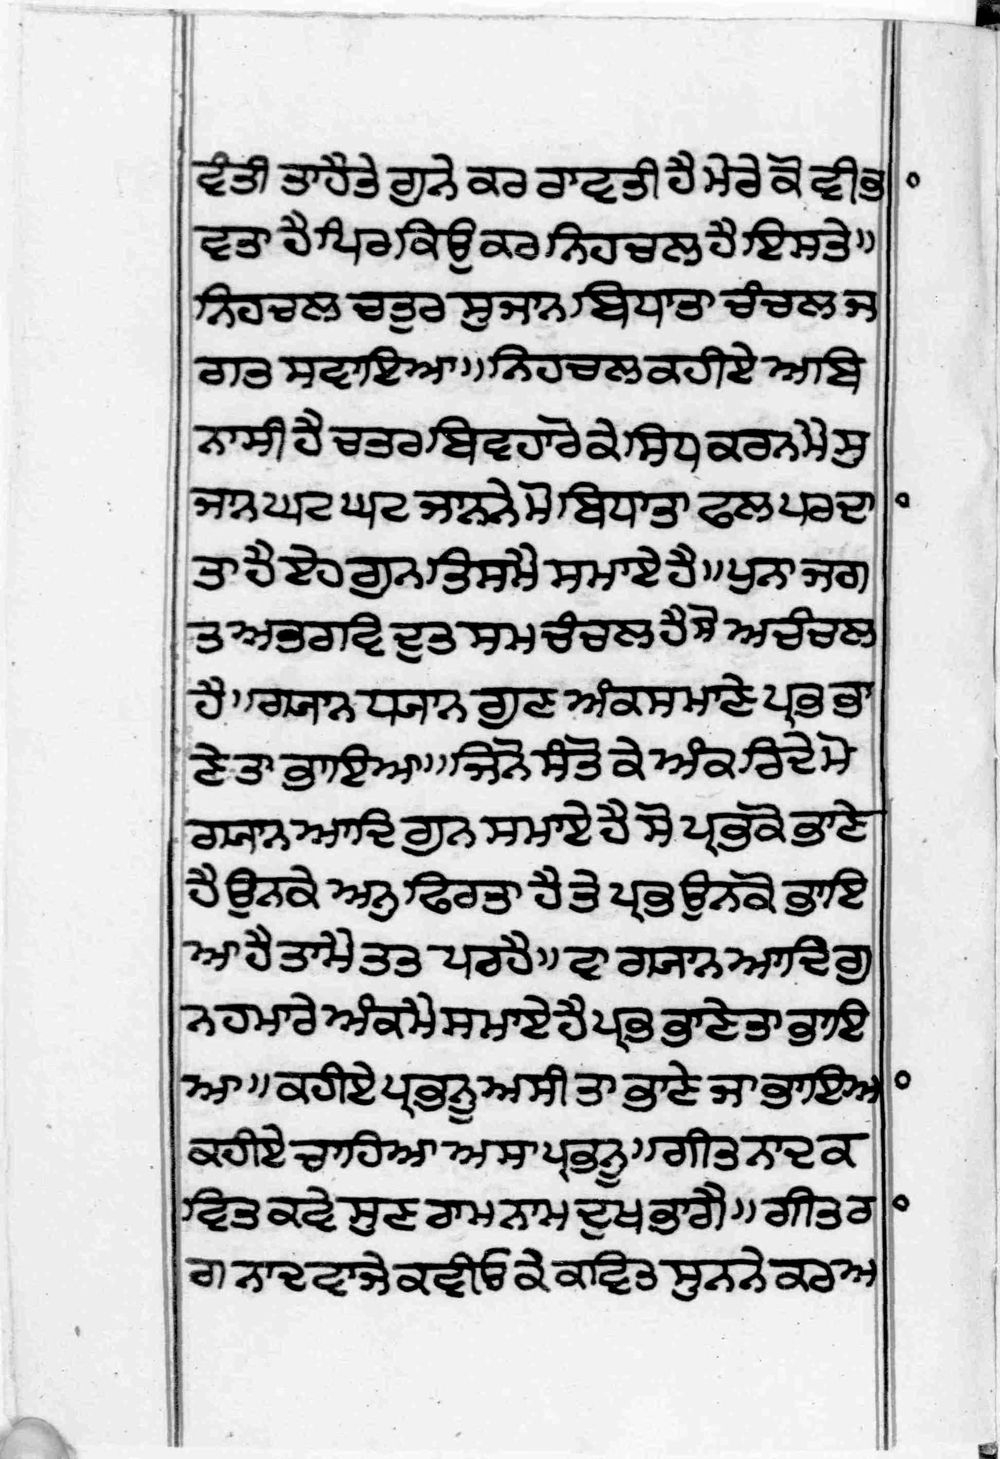 ਵੰਤੀ ਤਾਹੈਤੇ ਗੁਨੇ ਕਰ ਰਾਵਤੀ ਹੈ ਮੇਰੇ ਕੋ ਵੀਭ
ਵਤਾ ਹੈ ਪਿਰ ਕਿਉਕਰ ਨਿਹਚਲ ਹੈ ਇਸਤੇ॥
ਨਿਹਚਲ ਚਤੁਰ ਸੁਜਾਨ ਬਿਧਾਤਾ ਚੰਚਲ ਜ
ਗਤ ਸਵਾਇਆ॥ ਨਿਹਚਲ ਕਹੀਏ ਆਬਿ
ਨਾਸੀ ਹੈ ਚਤਰ ਬਿਵਹਾਰੋ ਕੇ ਸਿਧ ਕਰਨਮੇ ਸੁ
ਜਾਨ ਘਟ ਘਟ ਜਾਨਨੇ ਮੋ ਬਿਧਾਤਾ ਫਲ ਪਰਦਾ
ਤਾ ਹੈ ਏਹ ਗੁਨ ਤਿਸਮੈ ਸਮਾਏ ਹੈ॥ ਪੁਨਾ ਜਗ
ਤ ਅਭਰਾਵਿ ਦੁਤ ਸਮ ਚੰਚਲ ਹੈ ਸੋ ਅਚੰਚਲ
ਹੈ॥ ਗਯਾਨ ਧਯਾਨ ਗੁਣ ਅੰਕ ਸਮਾਣੇ ਪ੍ਰਭ ਭਾ
ਣੇ ਤਾ ਭਾਇਆ॥ ਜਿਨੋ ਸੰਤੋ ਕੇ ਅੰਕ ਰਿਦੇ ਮੋ
ਗਯਾਨ ਆਦਿ ਗੁਨ ਸਮਾਏ ਹੈ ਸੋ ਪ੍ਰਭੁਕੋ ਭਾਣੇ
ਹੈ ਉਨਕੇ ਅਨੁ ਫਿਰਤਾ ਹੈ ਤੇ ਪ੍ਰਭ ਉਨਕੋ ਭਾਇ
ਆ ਹੈ ਤਾਮੇ ਤਤ ਪਰਹੈ॥ ਵਾ ਗਯਾਨ ਆਦਿ ਗੁ
ਨ ਹਮਾਰੇ ਅੰਕਮੈ ਸਮਾਏ ਹੈ ਪ੍ਰਭ ਭਾਣੇ ਤਾ ਭਾਇ
ਆ॥ ਕਹੀਏ ਪ੍ਰਭਨੂ ਅਸੀ ਤਾ ਭਾਣੇ ਜਾ ਭਾਇਅ
ਕਹੀਏ ਚਾਹਿਆ ਅਸਾ ਪ੍ਰਭਨੂ॥ ਗੀਤ ਨਾਦ ਕ
ਵਿਤ ਕਵੇ ਸੁਣ ਰਾਮ ਨਾਮ ਦੁਖ ਭਾਗੈ॥ ਗੀਤ ਰ
ਗ ਨਾਦ ਵਾਜੇ ਕਵੀਓ ਕੇ ਕਵਿਤ ਸੁਨਨੇ ਕਰ ਅ